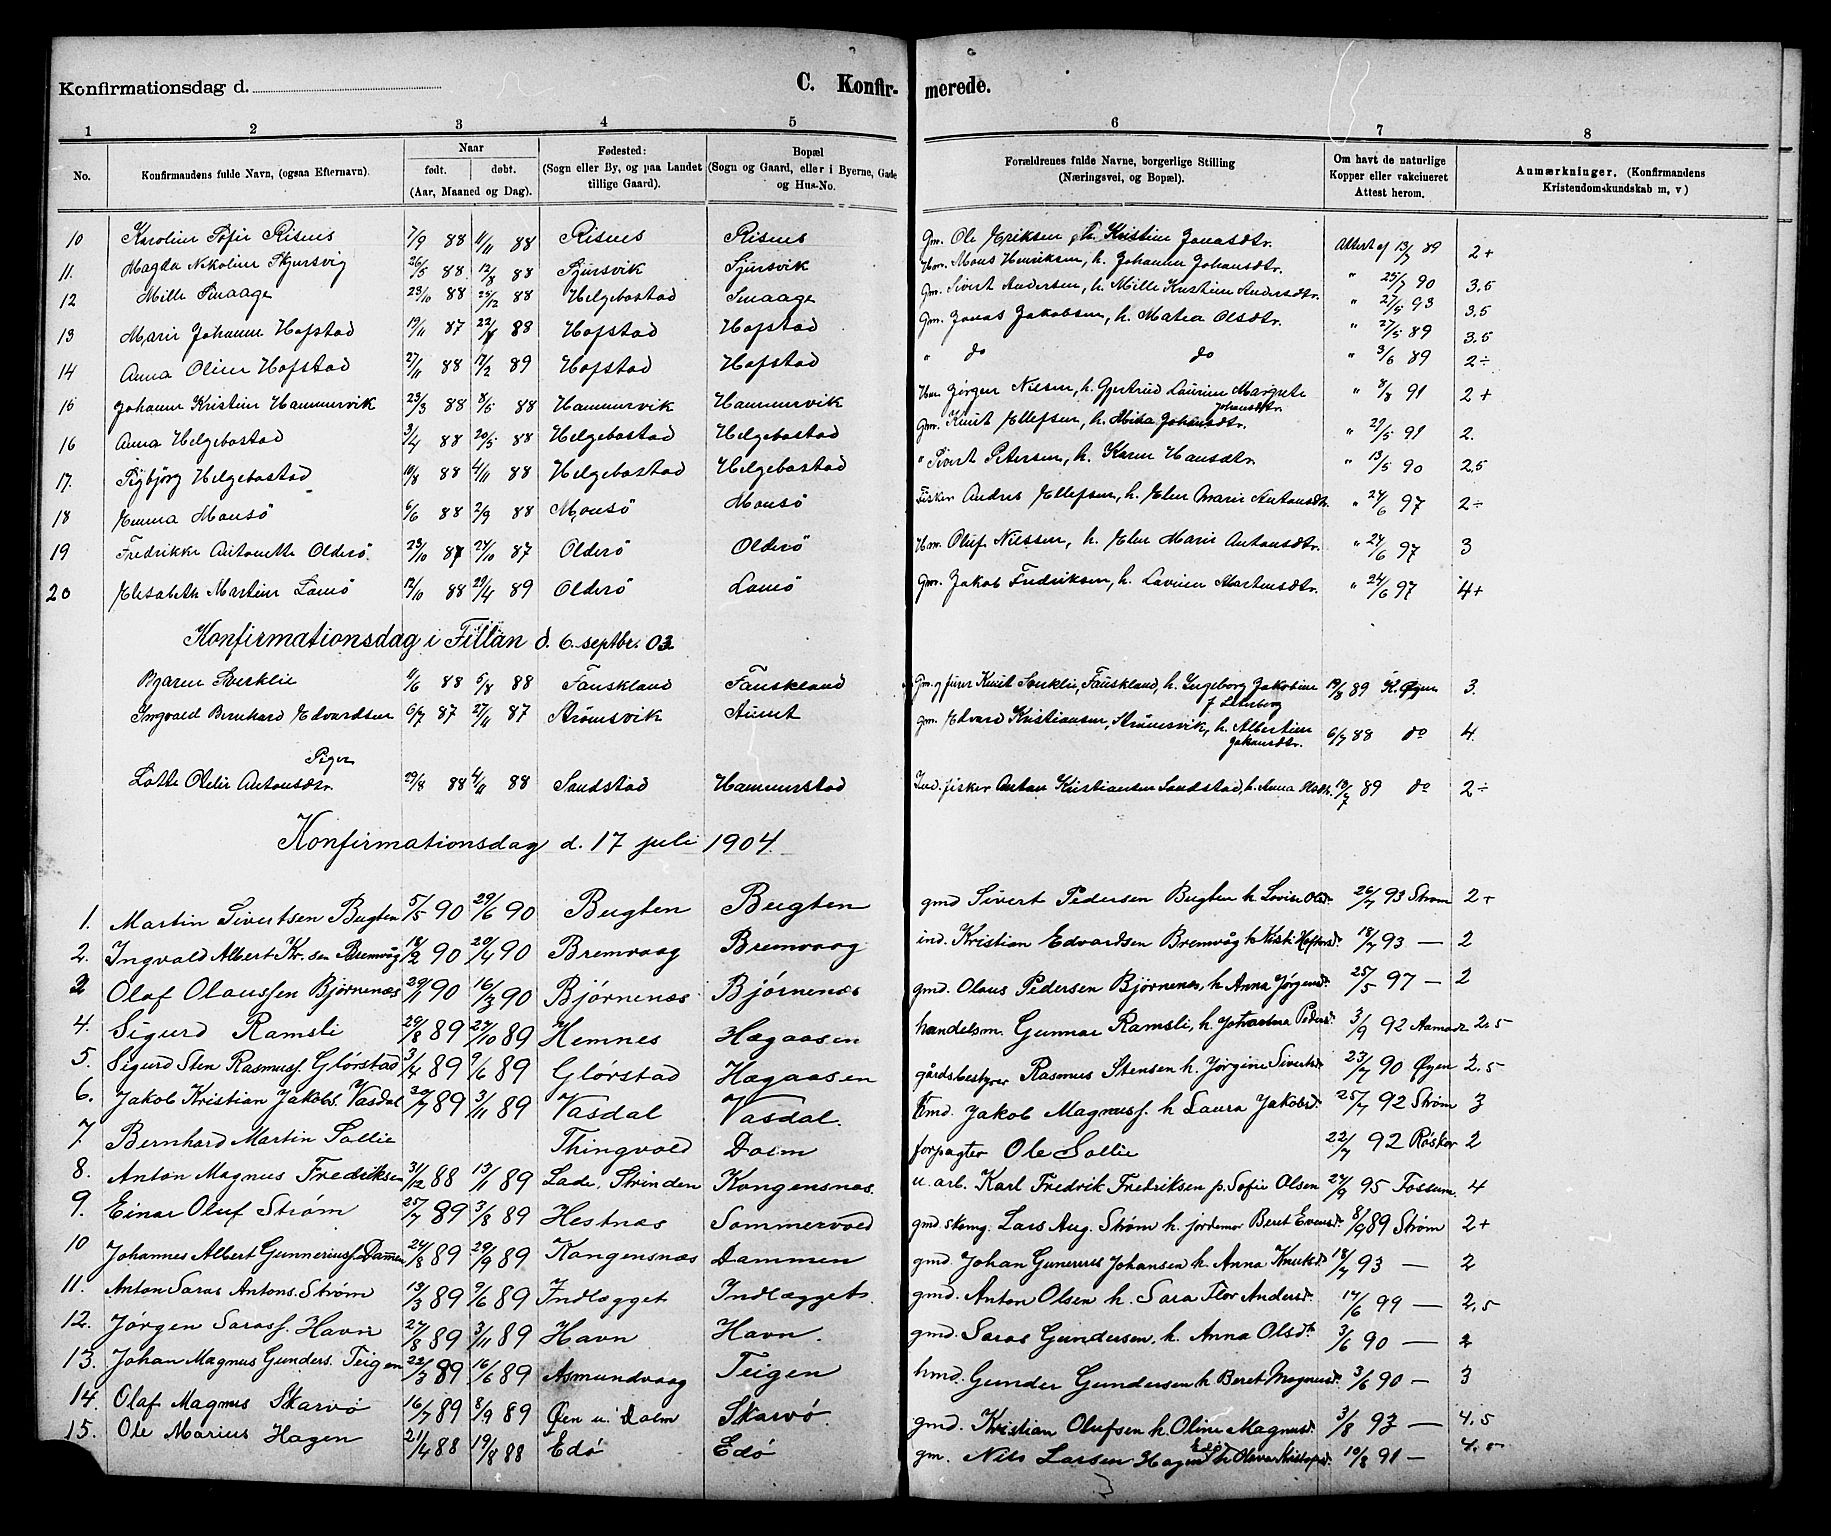 Konfirmationsdag d. C. Konfir- merede.
1 2 3 4 5 6 7 8
No. Konfirmandens fulde Navn, (ogsaa Efternavn). Naar født. døbt. (Aar, Maaned og Dag). Fødested: (Sogn eller By, og paa Landet tillige Gaard). Bopæl (Sogn og Gaard, eller i Byerne, Gade og Hus-No. Forældrenes fulde Navne, borgerlige Stilling (Næringsvei, og Bopæl). Om havt de naturlige Kopper eller vakcineret Attest herom. Anmærkninger. (Konfirmandens Kristendomskundskab m, v)
10 Karoline Sofie Risnes 7/9 88 11/11 88 Risnes Risnes Gm. Ole Eriksen, h. Kristine Jonasdtr. Attest af 13/7 89 2+
11. Magda Nikoline Sjursvig 26/5 88 12/8 88 Sjursvik Sjursvik Hm. Mons Henriksen, h. Johanne Johansdtr. " 25/7 90 3.5
12 Mille Smaage 23/10 88 88 Helgebostad Smaage Gm. Sivert Andersen, h. Mille Kristine Andersdtr. " 27/5 93 3.5
13 Marie Johanne Hofstad 19/11 87 88 Hofstad Hofstad Gm. Jonas Jakobsen, h. Matea Olsdtr. " 27/5 89 3.5
14 Anna Oline Hofstad 27/11 88 17/2 89 Hofstad Hofstad " do do " 3/6 89 2÷
15 Johanne Kristine Hammervik 23/3 88 8/5 88 Hammervik Hammervik Hm Jørgen Nilsen, h. Gjertrud Laurine Margrete Johansdtr. " 8/8 91 2+
16 Anna Helgebostad 3/4 88 20/5 88 Helgebostad Helgebostad Gm. Knut Ellefsen, h. Mika Johansdtr. " 29/5 91 2.
17. Sigbjørg Helgebostad 19/8 88 4/11 88 Helgebostad Helgebostad " Sivert Petersen, h. Karen Hansdtr. " 13/5 90 2.5
18 Emma Monsø 6/6 88 2/9 88 Monsø Monsø Fisker Andres Ellefsen, h. Elen Marie Antonsdtr. " 24/6 97 2÷
19 Fredrikke Antonette Olderø 23/10 87 87 Olderø Olderø Hm. Oluf Nilsen, h. Elen Marie Antonsdtr. " 24/6 97 3
20 Elisabeth Martine Lamø 12/10 88 29/4 89 Olderø Lamø Gm. Jakob Fredriksen, h. Lavine Martensdtr. " 24/6 97 4+
Konfirmationsdag i Fillan d. 6. septbr. 03.
Bjarne Sverklie 11/6 88 5/8 88 Fauskland Fauskland Gm. og furer Knut Sverklie, Fauskland, h. Ingeborg Jakobine 19/8 89 K. Øyen 3.
Ingvald Bernhard Edvardsen 6/7 87 27/11 87 Strømsvik Aunet gm. Edvard Kristiansen, Strømsvik, h. Albertine Johansdtr. 6/7 88 do 4.
Piger
Lotte Otelie Antonsdtr. 29/8 88 4/11 88 Sandstad Hammerstad Ind. fisker Anton Kristiansen Sandstad, h. Anna 89 do 2÷
Konfirmationsdag d. 17 juli 1904.
1. Martin Sivertsen Bugten 5/5 90 29/6 90 Bugten Bugten gmd Sivert Pedersen Bugten h Lovise Olsd. 26/7 93 Strøm 2+
2. Ingvald Albert Kr.sen Bremvåg 18/2 90 20/4 90 Bremvaag Bremvaag ind. Kristian Edvardsen Bremvåg h 18/7 93 — 2
3 Olaf Olaussen Bjørnenæs 29/1 90 16/3 90 Bjørnenæs Bjørnenæs gmd. Olaus Pedersen Bjørnenes, h. Anna Jørgensd. 25/5 97 — 2
4. Sigurd Ramsli 29/8 89 27/10 89 Hemnes Hægaasen handelsm. Gunnar Ramsli, h. Johanna Pedersd. 3/9 92 2.5
5. Sigurd Sten Rasmuss. Glørstad 3/4 89 9/6 89 Glørstad Hægaasen gårdsbestyrer Rasmus Stensen h. Jørgine Sivertsd. 23/7 90 Øyen 2.5
6. Jakob Kristian Jakobs. Vasdal 89 3/11 89 Vasdal Vasdal. Gmd. Jakob Magnuss. h Laura Jakobsd. 25/7 92 Strøm 3
7. Bernhard Martin Sollie Thingvold Dolm forpagter Ole Sollie 22/7 92 Røsker 2
8. Anton Magnus Fredriksen 31/12 88 13/1 89 Lade, Strinden Kongensnæs. u. arb. Karl Fredrik Fredriksen p. Sofie Olsen 24/9 95 Tossum. 4
9. Einar Oluf Strøm 25/7 89 3/8 89 Hestnæs Sommervold gmd. skomg. Lars Aug. Strøm h. jordemor Beret Evensd. 8/9 89 Strøm 2+
10 Johannes Albert Gunneriuss. Dammen 24/8 89 29/9 89 Kongensnæs Dammen gmd. Johan Gunerius Johansen h. Anna Knutsd. 18/7 93 — 2
11. Anton Saras Antons. Strøm 13/3 89 9/6 89 Indlægget Indlægget. gmd. Anton Olsen h. Sara Flor Andersd. 14/6 99 — 2.5
12. Jørgen Sarass. Havn 27/8 89 3/11 89 Havn Havn. gmd. Saras Gundersen, h. Anna Olsdt. 3/6 90 — 2
13. Johan Magnus Gunders. Teigen 22/3 89 16/6 89 Asmundvaag Teigen hmd. Gunder Gundersen h Beret Magnusd. 3/6 90 — 3
14. Olaf Magnus Skarvø 16/7 89 8/9 89 Øen u. Dolm Skarvø. gmd. Kristian Olufsen h. Oline Magnusd. 3/8 93 — 4.5
15. Ole Marius Hagen 21/4 88 19/8 88 Edø Edø gm. Nils Larsen Hagen Edø h Olava 19/8 91 —